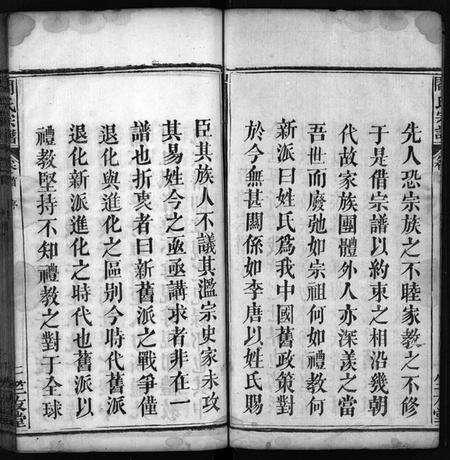 先人恐宗族之不睦家教之不修
于是借宗譜以約束之相沿幾朝
代故家族團體外人亦深羨之當
吾世而廢弛如宗祖何如禮教何
新派曰姓氏爲我中國舊政策對
於今無甚關係如李唐以姓氏賜
臣其族人不議其濫宗史家未攻
其易姓今之亟亟講求者非在一
譜也折衷者曰新舊派之戰爭僅
退化與進化之區别今時代舊派
退化新派進化之時代也舊派以
禮教堅持不知禮教之對于全球